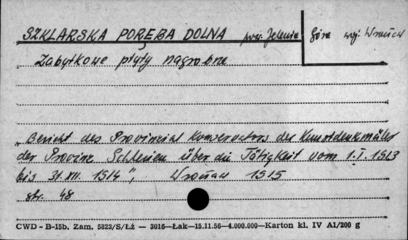 SZKLARSKA PORĘBA DOLNA pow. Jelenia Góra woj. Wrocław
Zabytkowe płyty nagrobne
„Bericht des Provinzial Konservators der Kunstdenkmäler
der Provinz Schlesien über die Tätigkeit vom 1.I.1913
bis 31.XII.1914", Wrocław 1915
str. 48
CWD - B-15b. Zam. 5823/S/Łż — 3016—Łak—15.11.56—4.000.000—Karton kl. IV A1/200 g